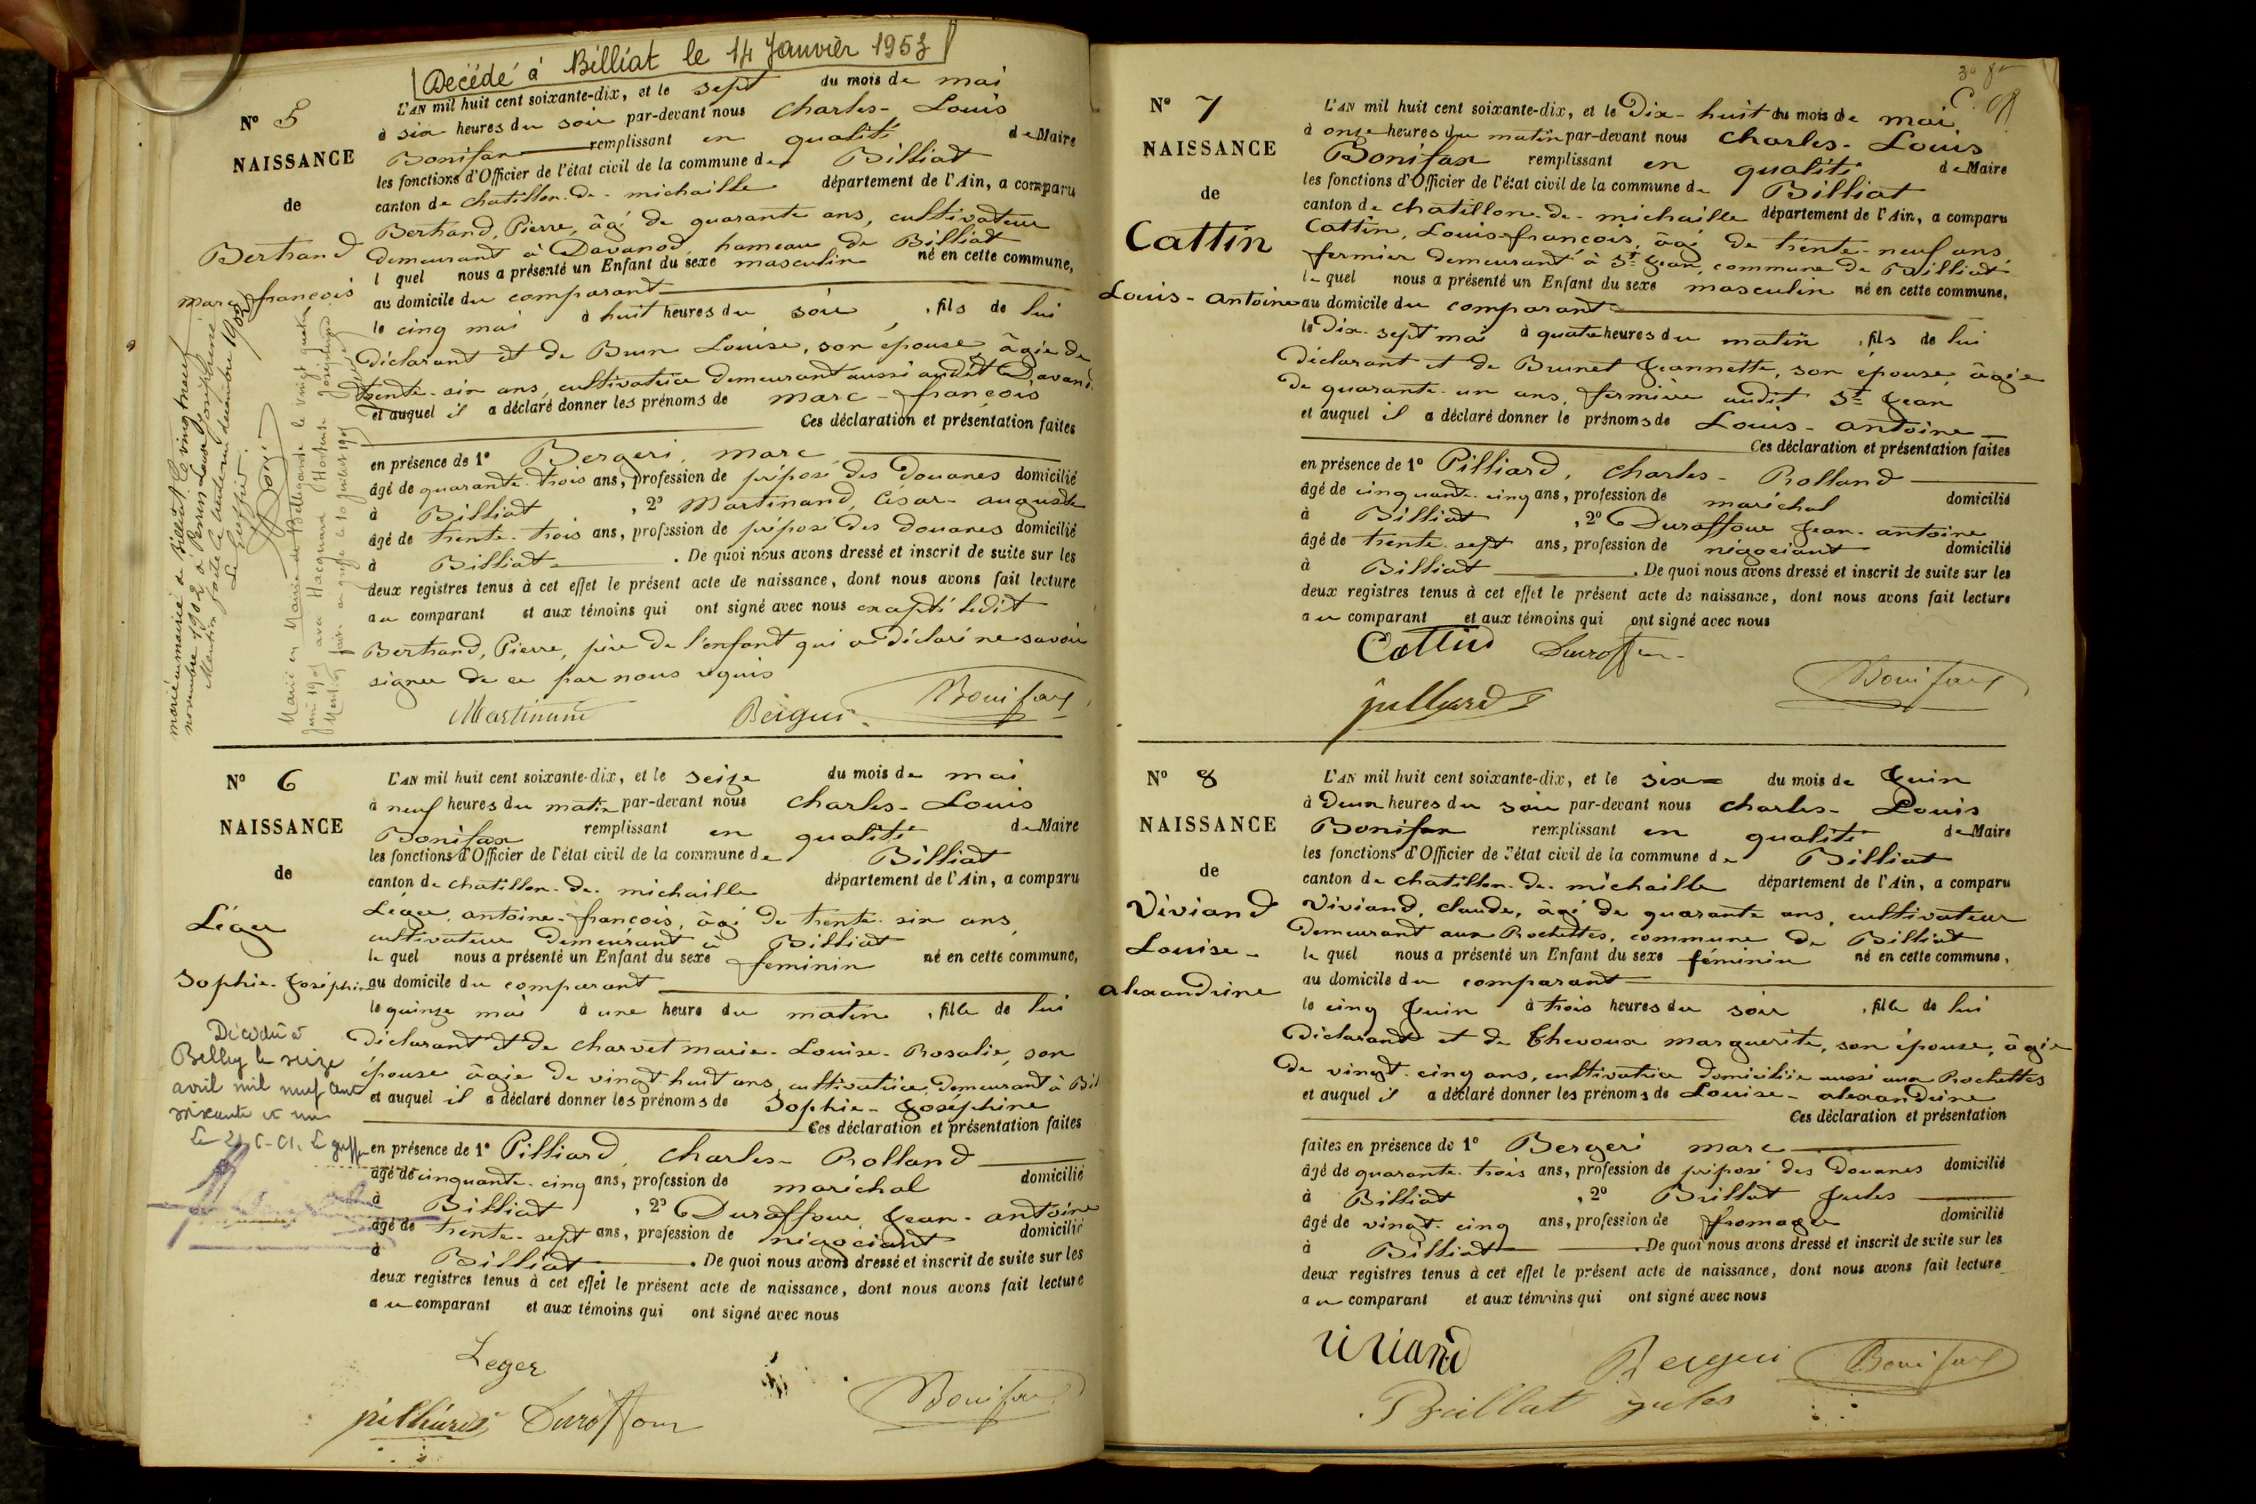 Decédé à Billiat le 14 Janvier 1953
N° 5
NAISSANCE
de
Bertrand
marc françois
L'AN mil huit cent soixante-dix, et le sept du mois de mai
à six heures du soir par-devant nous Charles-Louis
Bonifax remplissant en qualité de Maire
les fonctions d'Officier de l'état civil de la commune de Billiat
canton de chatillon-de-michaille département de l'Ain, a comparu
Bertrand, Pierre, âgé de quarante ans, cultivateur
demeurant à Davanod, hameau de Billiat
l quel nous a présenté un Enfant du sexe masculin né en cette commune,
au domicile du comparant
le cinq mai à huit heures du soir, fils de lui
déclarant et de Brun Louise, son épouse, âgée de
trente-six ans, cultivatrice demeurant aussi audit Davanod
et auquel il a déclaré donner les prénoms de marc-françois
Ces déclaration et présentation faites
en présence de 1° Bergeri, marc
âgé de quarante-trois ans, profession de préposé des Douanes domicilié
à Billiat, 2° Martinand, César-auguste
âgé de trente-trois ans, profession de préposé des douanes domicilié
à Billiat. De quoi nous avons dressé et inscrit de suite sur les
deux registres tenus à cet effet le présent acte de naissance, dont nous avons fait lecture
au comparant et aux témoins qui ont signé avec nous excepté ledit
Bertrand, Pierre, père de l'enfant qui a déclaré ne savoir
signer de ce par nous requis
Martinand Bergeri Bonifax
marié en mairie de Billiat le vingt trois
novembre 1902 à Perrin Louise Joséphine
Mention faite le décembre 1902
Le Greffier.
Marié en Mairie de Bellegarde le vingt quatre
juin 1905 avec Hacquard Hortense Joséphine
Mention faite au greffe le 10 juillet 1905
N° 6
NAISSANCE
de
Léger
Sophie-Joséphine
L'AN mil huit cent soixante-dix, et le seize du mois de mai
à neuf heures du matin par-devant nous Charles-Louis
Bonifax remplissant en qualité de Maire
les fonctions d'Officier de l'état civil de la commune de Billiat
canton de chatillon-de-michaille département de l'Ain, a comparu
Léger, antoine-françois, âgé de trente-six ans,
cultivateur demeurant à Billiat
le quel nous a présenté un Enfant du sexe féminin né en cette commune,
au domicile du comparant
le quinze mai à une heure du matin, fille de lui
déclarant et de Charvet marie-Louise-Rosalie, son
épouse âgée de vingt huit ans, cultivatrice demeurant à Bil
et auquel il a déclaré donner les prénoms de Sophie-Joséphine
Ces déclaration et présentation faites
en présence de 1° Pilliard, Charles-Rolland
âgé de cinquante-cinq ans, profession de maréchal domicilié
à Billiat, 2° Duraffour Jean-antoine
âgé de trente-sept ans, profession de négociant domicilié
à Billiat. De quoi nous avons dressé et inscrit de suite sur les
deux registres tenus à cet effet le présent acte de naissance, dont nous avons fait lecture
au comparant et aux témoins qui ont signé avec nous
Décédée à
Belley le seize
avril mil neuf cent
soixante et un
Leger
pilliard Duraffour Bonifax
N° 7
NAISSANCE
de
Cattin
Louis-antoine
L'AN mil huit cent soixante-dix, et le Dix-huit du mois de mai
à onze heures du matin par-devant nous Charles-Louis
Bonifax remplissant en qualité de Maire
les fonctions d'Officier de l'état civil de la commune de Billiat
canton de chatillon-de-michaille département de l'Ain, a comparu
Cattin, Louis-françois, âgé de trente-neuf ans
fermier demeurant à St Jean, commune de Billiat
le quel nous a présenté un Enfant du sexe masculin né en cette commune,
au domicile du comparant
le Dix-sept mai à quatre heures du matin, fils de lui
déclarant et de Brunet Jeannette, son épouse, âgée
de quarante-un ans, fermière audit St Jean
et auquel il a déclaré donner le prénoms de Louis-antoine
Ces déclaration et présentation faites
en présence de 1° Pilliard, Charles-Rolland
âgé de cinquante-cinq ans, profession de maréchal domicilié
à Billiat, 2° Duraffour Jean-antoine
âgé de trente-sept ans, profession de négociant domicilié
à Billiat. De quoi nous avons dressé et inscrit de suite sur les
deux registres tenus à cet effet le présent acte de naissance, dont nous avons fait lecture
au comparant et aux témoins qui ont signé avec nous
Cattin Duraffour
pilliard Bonifax
N° 8
NAISSANCE
de
Viviand
Louise-
alexandrine
L'AN mil huit cent soixante-dix, et le six du mois de Juin
à Deux heures du soir par-devant nous Charles-Louis
Bonifax remplissant en qualité de Maire
les fonctions d'Officier de l'état civil de la commune de Billiat
canton de chatillon-de-michaille département de l'Ain, a comparu
Viviand, claude, âgé de quarante ans, cultivateur
demeurant aux Rochettes, commune de Billiat
le quel nous a présenté un Enfant du sexe féminin né en cette commune,
au domicile du comparant
le cinq Juin à trois heures du soir, fille de lui
déclarant et de Thevoux marguerite, son épouse, âgée
de vingt-cinq ans, cultivatrice domiciliée aussi aux Rochettes
et auquel il a déclaré donner les prénoms de Louise-alexandrine
Ces déclaration et présentation
faites en présence de 1° Bergeri marc
âgé de quarante-trois ans, profession de préposé des Douanes domicilié
à Billiat, 2° Brillat Jules
âgé de vingt-cinq ans, profession de fromager domicilié
à Billiat. De quoi nous avons dressé et inscrit de suite sur les
deux registres tenus à cet effet le présent acte de naissance, dont nous avons fait lecture
au comparant et aux témoins qui ont signé avec nous
Viviand Bergeri Bonifax
Brillat Jules